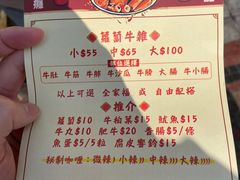 蘿蔔牛雜
小$55 中$65 大$100
部位選擇
牛肚 牛筋 牛肺 牛沙瓜 牛膀 大腸 牛小腸
以上可選 全家福 或 自由配搭
推介
蘿蔔$10 牛柏葉$15 魷魚$15
牛丸$10 肥牛$20 香腸$5/條
魚蛋$5/5粒 腐皮響鈴$15
秘制咖喱：微辣 小辣 中辣 大辣